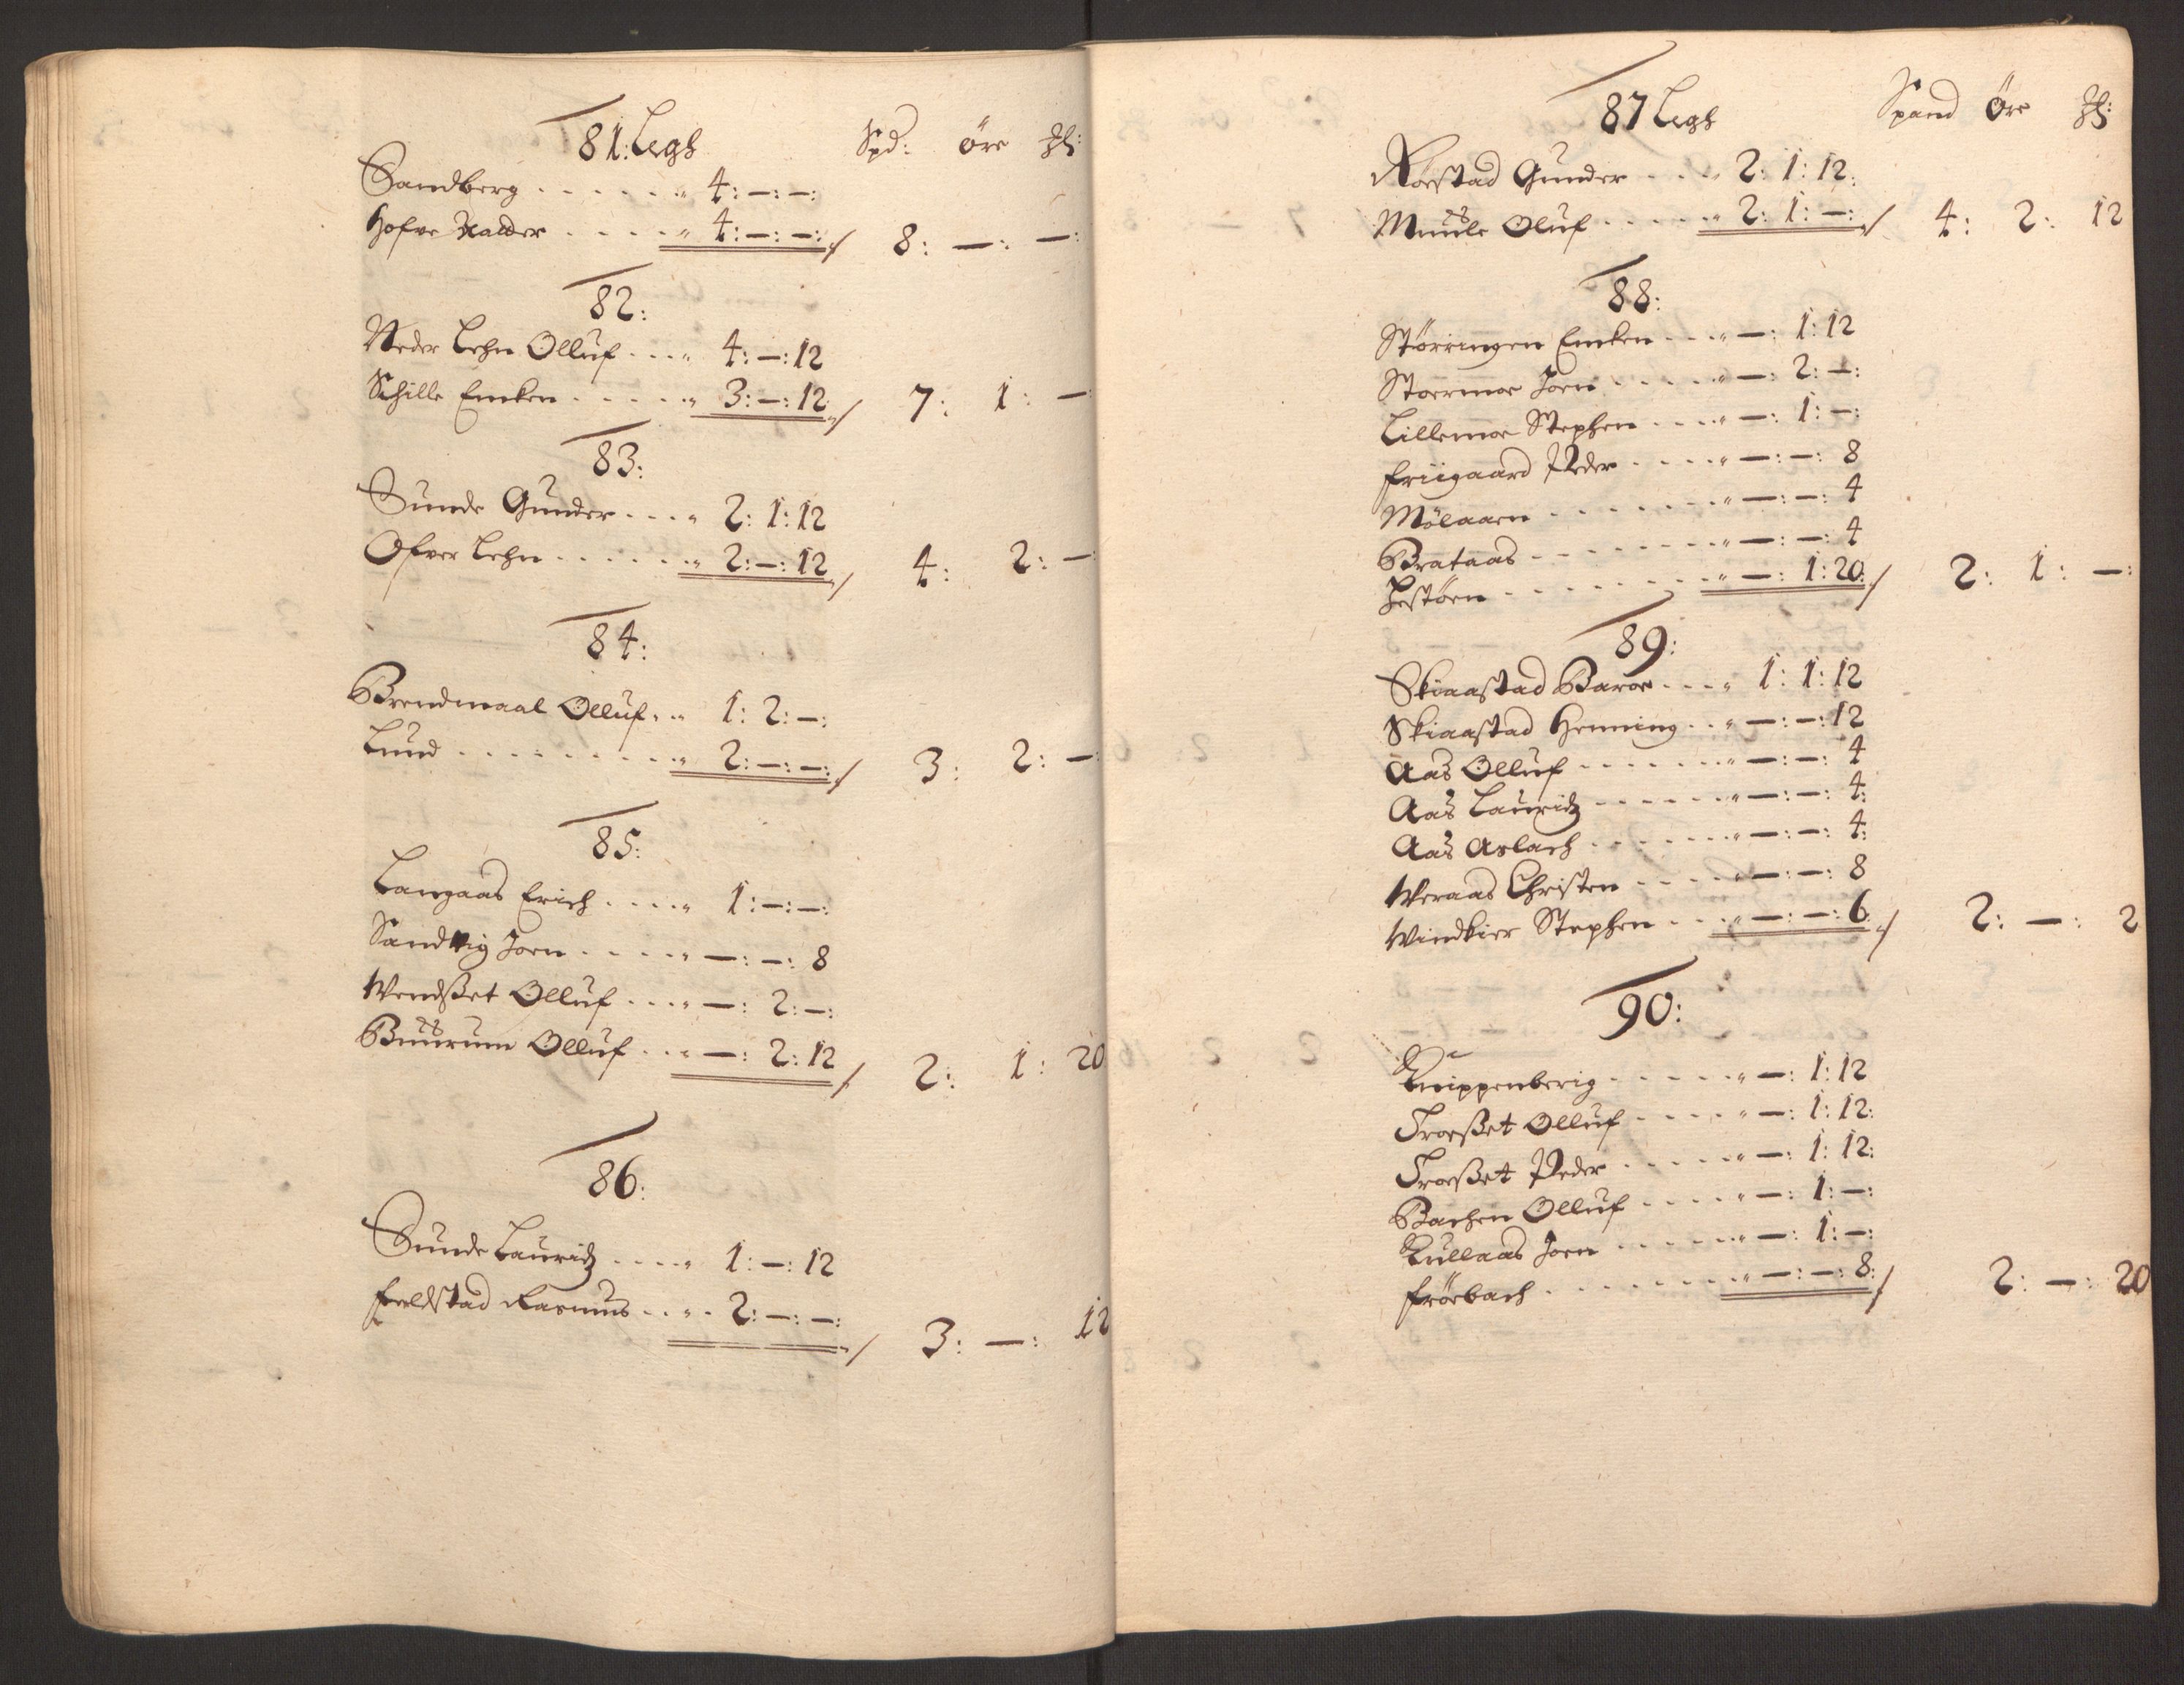 81: Legh Spd: öre
Sandberg . . . . . . " 4: —: —:
Hofve Halder . . . . . " 4: —: —: / 8: —: —:
82:
Neder Lehn Olluf . . . " 4: —: 12
Schille Encken . . . . . " 3: —: 12 / 7: 1: —
83:
Sunde Gunder . . . " 2: 1: 12
Ofver Lehn . . . . . . " 2: —: 12 / 4: 2: —:
84:
Brendmaal Olluf . . " 1: 2: —:
Lund . . . . . . . . . " 2: —: —: / 3: 2: —:
85:
Langaas Erich . . . . " 1: —: —:
Sandvig Joen . . . . . " —: —: 8
Wendsset Olluf . . . " —: 2: —:
Buurum Olluf . . . " —: 2: 12 / 2: 1: 20
86:
Sunde Lauridz . . . . " 1: —: 12
Feeldstad Rasmus . . " . 2: —: —: / 3: —: 12
87 Legh Spand Öre
Roestad Gunder . . . . " 2: 1: 12:
Muule Oluf . . . . . " 2: 1: —: / 4: 2: 12
88:
Störringen Encken . . . " —: 1: 12
Stoermoe Joen . . . . . " —: 2: —:
Lillemoe Stephen . . . . " —: 1: —:
Friigaard Peder . . . . " —: —: 8
Mölaaen . . . . . . . " —: —: 4
Brataas . . . . . . . . " —: —: 4
Festöen . . . . . . . . " —: 1: 20: / 2: 1: —:
89:
Skiaastad Baroe . . . " 1: 1: 12
Skiaastad Henning . . " —: —: 12
Aas Olluf . . . . . . . " —: —: 4
Aas Lauridz . . . . . . " —: —: 4:
Aas Aslach . . . . . . . " —: —: 4:
Weraas Christen . . . . " —: —: 8
Windkier Stephen . . . " —: —: 6: / 2: —: 2
90:
Knippenberig . . . . . " —: 1: 12
Troesset Olluf . . . . " —: 1: 12:
Troesset Peder . . . . . " —: 1: 12:
Bachen Olluf . . . . . " —: 1: —:
Kullaas Joen . . . . . . " —: 1: —:
Fröebach . . . . . . . . " —: —: 8: / 2: —: 20